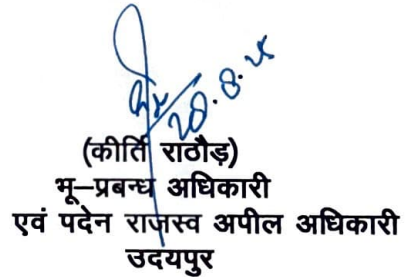 28.8.25
(कीर्ति राठौड़)
भू–प्रबन्ध अधिकारी
एवं पदेन राजस्व अपील अधिकारी
उदयपुर